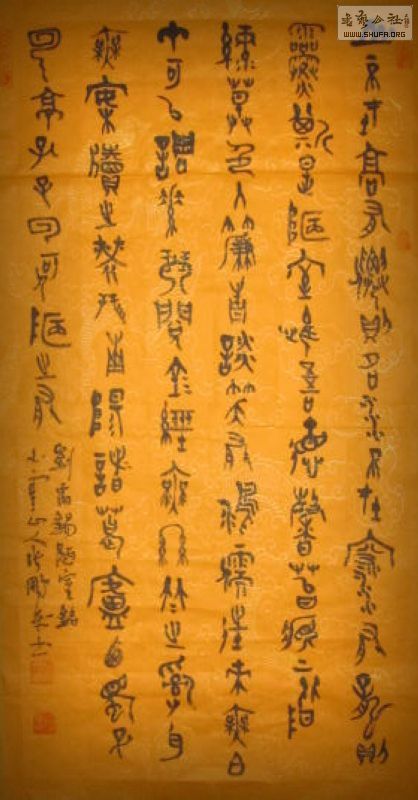 山不在高有僊則名水不在深有龍則
靈斯是陋室惟吾德馨苔痕上階
綠草色入簾青談笑有鴻儒往來無白
丁可以調素琴閱金經無絲竹之亂耳
無案牘之勞形南陽諸葛廬西蜀子
雲亭孔子曰何陋之有
劉禹錫陋室銘
WWW.SHUFA.ORG